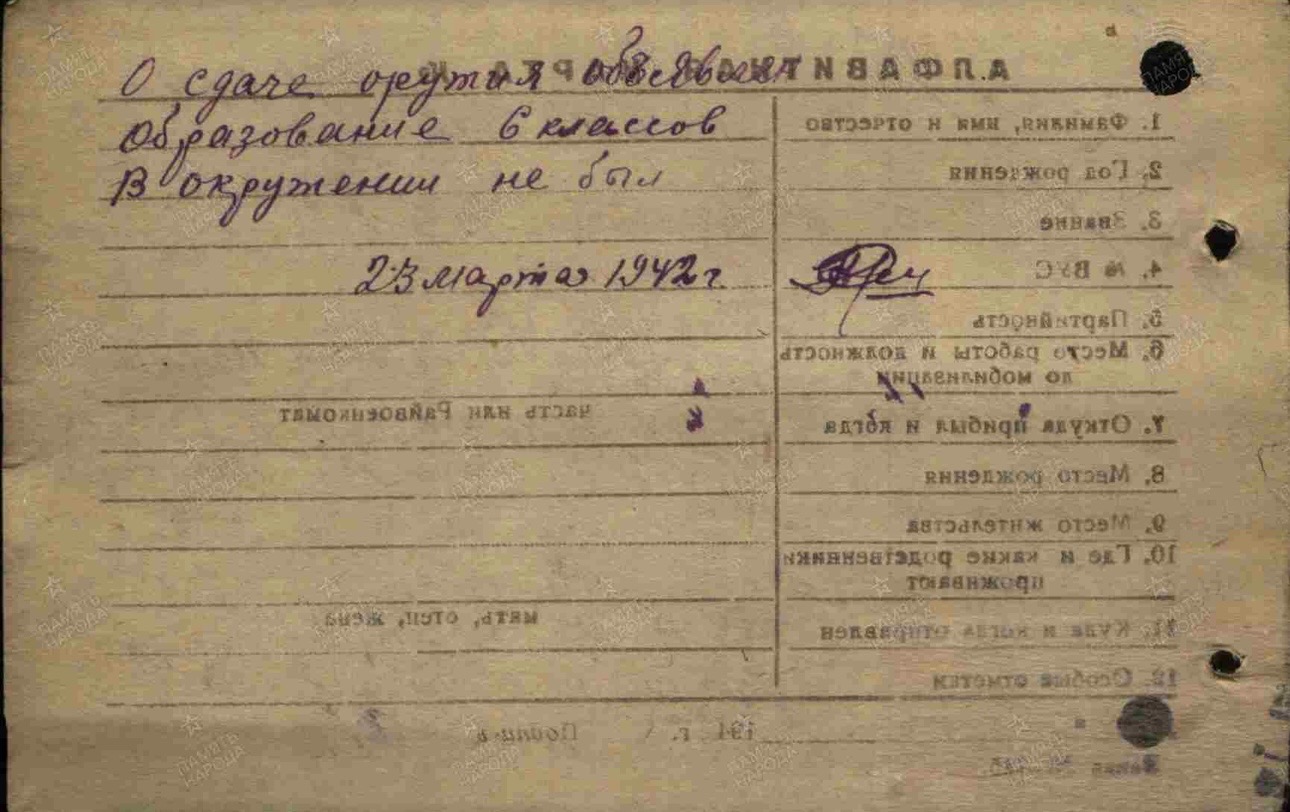 О сдаче оружия объявлен
Образование 6 классов
В окружении не был
23 марта 1942 г.
АЛФАВИТНАЯ КАРТОЧКА
1. Фамилия, имя и отчество
2. Год рождения
3. Звание
4. № ВУС
5. Партийность
6. Место работы и должность
до мобилизации
7. Откуда прибыл и когда
часть или Райвоенкомат
8. Место рождения
9. Место жительства
10. Где и какие родственники
проживают
мать, отец, жена
11. Куда и когда отправлен
12. Особые отметки
194 г. Подпись
ПАМЯТЬ НАРОДА